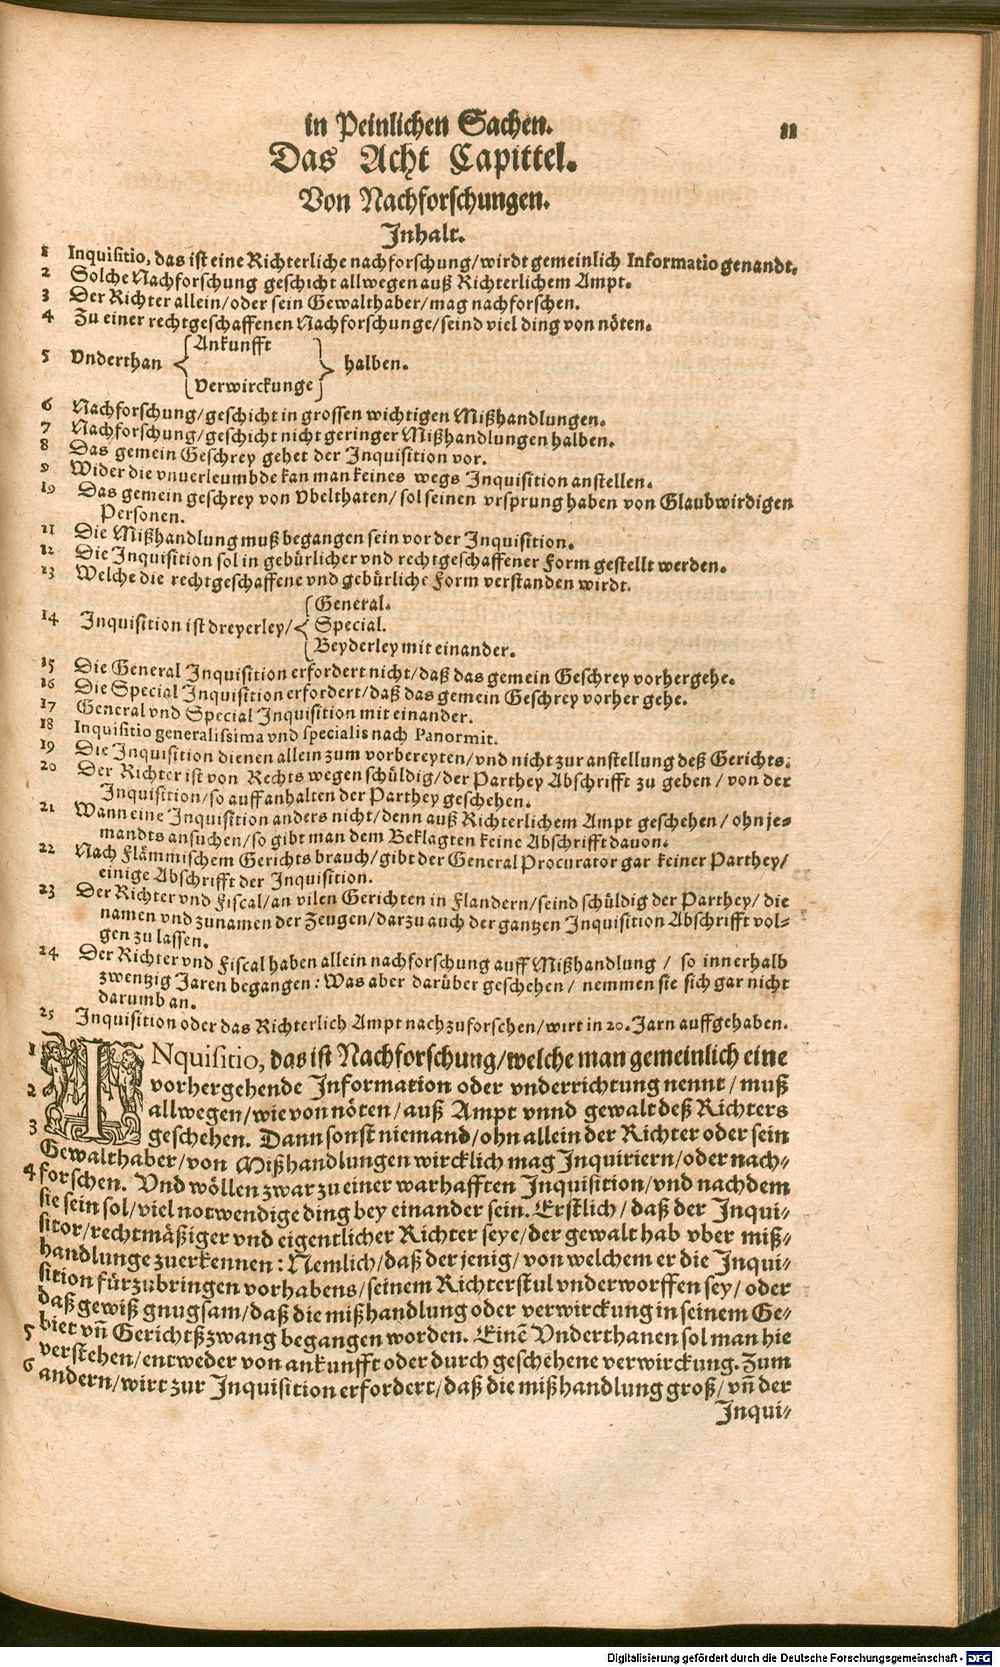 in Peinlichen Sachen. 11
Das Acht Capittel.
Von Nachforschungen.
Inhalt.
1 Inquisitio, das ist eine Richterliche nachforschung/wirdt gemeinlich Informatio genandt.
2 Solche Nachforschung geschicht allwegen auß Richterlichem Ampt.
3 Der Richter allein/oder sein Gewalthaber/mag nachforschen.
4 Zu einer rechtgeschaffenen Nachforschunge/seind viel ding von nöten.
Ankunfft
5 Vnderthan halben.
Verwirckunge
6 Nachforschung/geschicht in grossen wichtigen Mißhandlungen.
7 Nachforschung/geschicht nicht geringer Mißhandlungen halben.
8 Das gemein Geschrey gehet der Inquisition vor.
9 Wider die vnuerleumbde kan man keines wegs Inquisition anstellen.
10 Das gemein geschrey von Vbelthaten/sol seinen vrsprung haben von Glaubwirdigen
Personen.
11 Die Mißhandlung muß begangen sein vor der Inquisition.
12 Die Inquisition sol in gebürlicher vnd rechtgeschaffener Form gestellt werden.
13 Welche die rechtgeschaffene vnd gebürliche Form verstanden wirdt.
General.
14 Inquisition ist dreyerley/ Special.
Beyderley mit einander.
15 Die General Inquisition erfordert nicht/daß das gemein Geschrey vorhergehe.
16 Die Special Inquisition erfordert/daß das gemein Geschrey vorher gehe.
17 General vnd Special Inquisition mit einander.
18 Inquisitio generalissima vnd specialis nach Panormit.
19 Die Inquisition dienen allein zum vorbereyten/vnd nicht zur anstellung deß Gerichts.
20 Der Richter ist von Rechts wegen schüldig/der Parthey Abschrifft zu geben/von der
Inquisition/so auff anhalten der Parthey geschehen.
21 Wann eine Inquisition anders nicht/denn auß Richterlichem Ampt geschehen/ohn je-
mandts ansuchen/so gibt man dem Beklagten keine Abschrifft dauon.
22 Nach Flämmischem Gerichts brauch/gibt der General Procurator gar keiner Parthey/
einige Abschrifft der Inquisition.
23 Der Richter vnd Fiscal/an vilen Gerichten in Flandern/seind schüldig der Parthey/die
namen vnd zunamen der Zeugen/darzu auch der gantzen Inquisition Abschrifft vol-
gen zu lassen.
24 Der Richter vnd Fiscal haben allein nachforschung auff Mißhandlung/so innerhalb
zwentzig Jaren begangen: Was aber darüber geschehen/nemmen sie sich gar nicht
darumb an.
25 Inquisition oder das Richterlich Ampt nachzuforschen/wirt in 20. Jarn auffgehaben.
1 INquisitio, das ist Nachforschung/welche man gemeinlich eine
2 vorhergehende Information oder vnderrichtung nennt/muß
allwegen/wie von nöten/auß Ampt vnnd gewalt deß Richters
3 geschehen. Dann sonst niemand/ohn allein der Richter oder sein
Gewalthaber/von Mißhandlungen wircklich mag Inquiriern/oder nach-
4 forschen. Vnd wöllen zwar zu einer warhafften Inquisition/vnd nachdem
sie sein sol/viel notwendige ding bey einander sein. Erstlich/daß der Inqui-
sitor/rechtmäßiger vnd eigentlicher Richter seye/der gewalt hab vber miß-
handlunge zuerkennen: Nemlich/daß der jenig/von welchem er die Inqui-
sition fürzubringen vorhabens/seinem Richterstul vnderworffen sey/oder
daß gewiß gnugsam/daß die mißhandlung oder verwirckung in seinem Ge-
5 biet vñ Gerichtßzwang begangen worden. Einẽ Vnderthanen sol man hie
verstehen/entweder von ankunfft oder durch geschehene verwirckung. Zum
6 andern/wirt zur Inquisition erfordert/daß die mißhandlung groß/vñ der
Inqui-
Digitalisierung gefördert durch die Deutsche Forschungsgemeinschaft - DFG